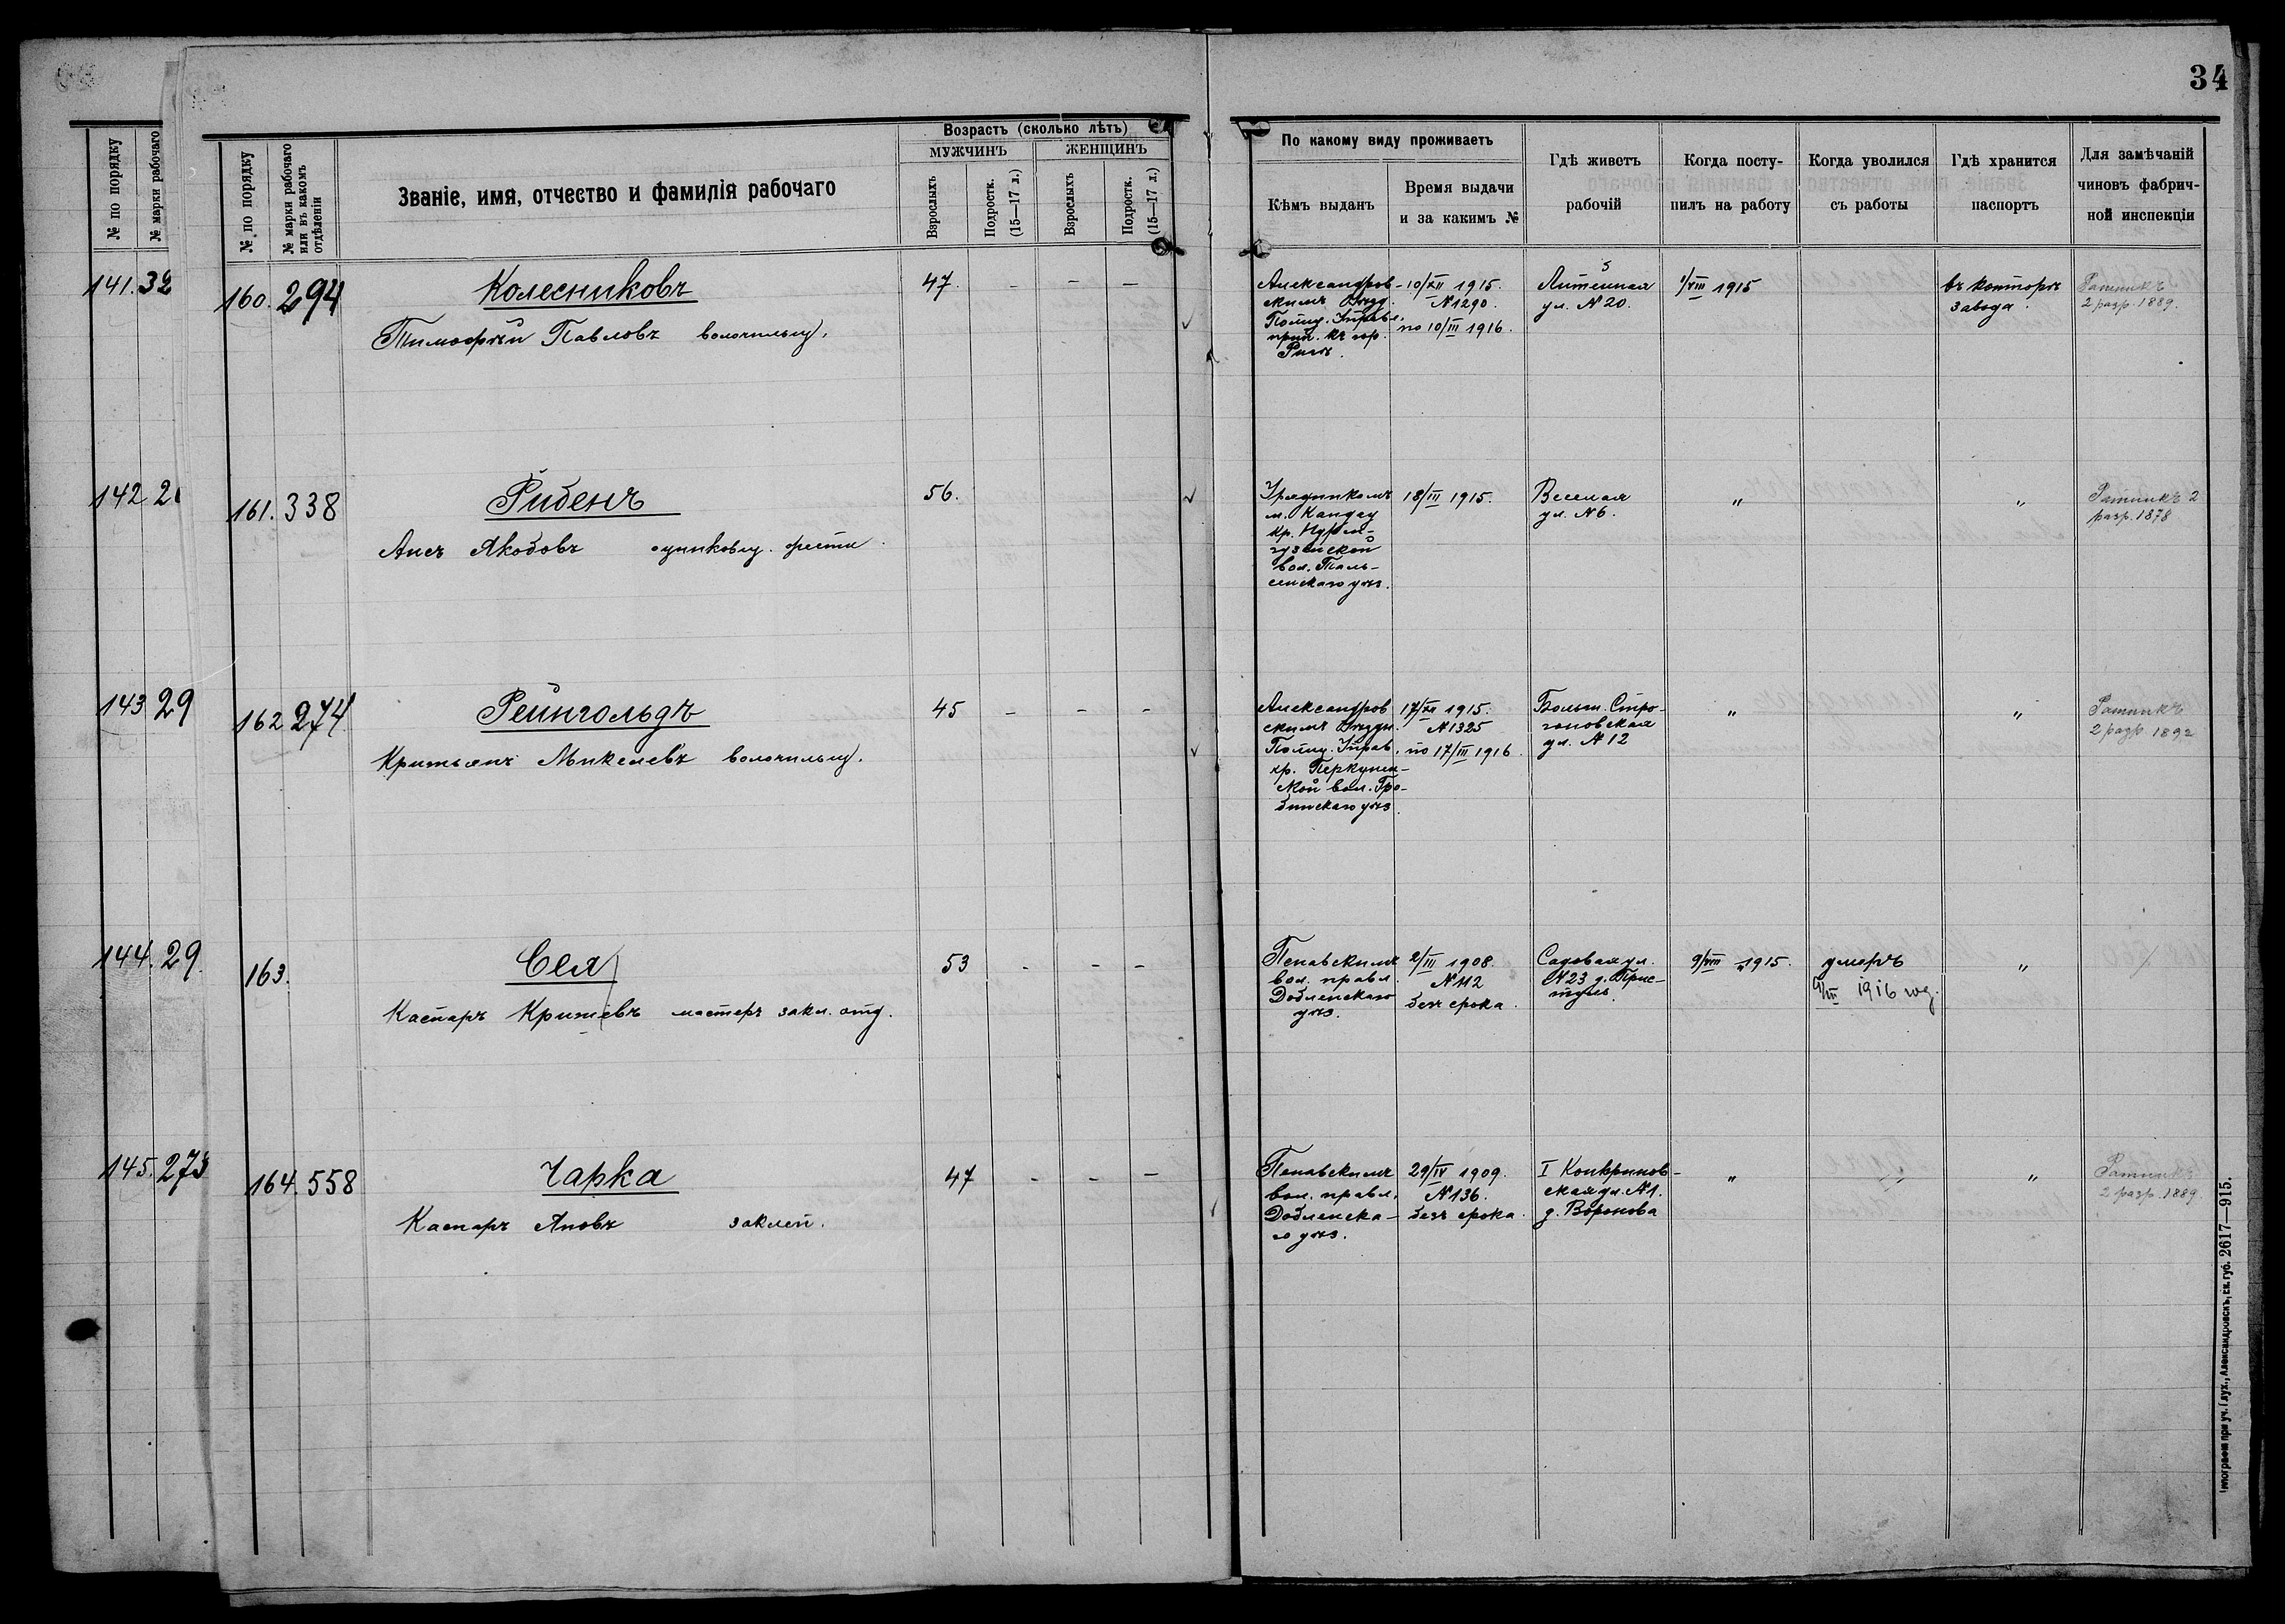 34
№ по порядку
№ марки рабочаго
141. 32
142 2
143 29
144. 29
145. 273
№ по порядку
№ марки рабочаго или въ какомъ отдѣленіи
Званіе, имя, отчество и фамилія рабочаго
Возрастъ (сколько лѣтъ)
МУЖЧИНЪ
ЖЕНЩИНЪ
Взрослыхъ
Подростк. (15—17 л.)
Взрослыхъ
Подростк. (15—17 л.)
По какому виду проживаетъ
Кѣмъ выданъ
Время выдачи
и за какимъ №
Гдѣ живетъ
рабочій
Когда посту-
пилъ на работу
Когда уволился
съ работы
Гдѣ хранится
паспортъ
Для замѣчаній
чиновъ фабрич-
ной инспекціи
160. 294
Колесниковъ
Тимофѣй Павловъ волочильщ.
47. - - -
Александров-
скимъ Уѣзд.
Полиц. Управл.
прип. къ гор.
Ригѣ.
10/XII 1915.
№ 1290.
по 10/III 1916.
Литейная
ул. № 20.
1/VIII 1915
въ конторѣ
завода.
Ратникъ
2 разр. 1889.
161. 338
Рибенъ
Ансъ Якобовъ оцинковщ.
56.
Урядникомъ
м. Кандау
вол. Таль-
сенскаго уѣз.
18/III 1915.
Веселая
ул. № 6.
"
"
Ратникъ 2
разр. 1878
162 274
Рейнгольдъ
Кришьянъ Микелевъ волочильщ.
45 - - -
Александров
скимъ Уѣздн.
Полиц. Управ.
кр. Перкунен-
ской вол. Гро-
бинскаго уѣз.
17/XII 1915.
№ 1325
по 17/III 1916.
Больш. Стро-
гоновская
ул. № 12
"
"
Ратникъ
2 разр 1892
163.
Сея
Каспаръ Кришевъ мастеръ закл. отд.
53 - - -
Пенавскимъ
вол. правл.
Добленскаго
уѣз.
2/III 1908.
№ 112
безъ срока.
Садовая ул.
№ 23 д. Прис-
тупы.
9/VIII 1915.
умеръ
1916 год.
"
164. 558
Чарка
Каспаръ Яновъ заклеп.
47 - - -
Пенавскимъ
вол. правл.
Добленска-
го уѣз.
29/IV 1909.
№ 136.
безъ срока.
I Конкринов-
ская ул. № 1.
д. Воронова
"
"
Ратникъ
2 разр. 1889.
2617—915.